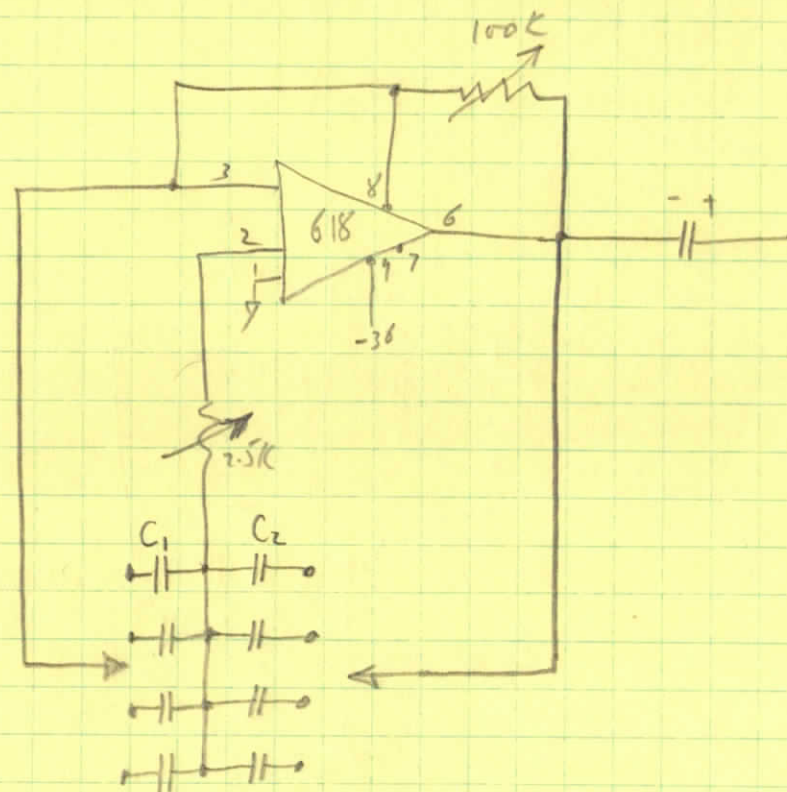 100K
3
8
618
6
2
1
9 7
-36
- +
2.5K
C₁ C₂